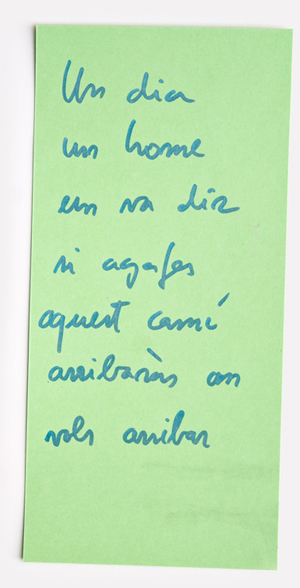 Un dia
un home
em va dir
si agafes
aquest camí
arribaràs on
vols arribar